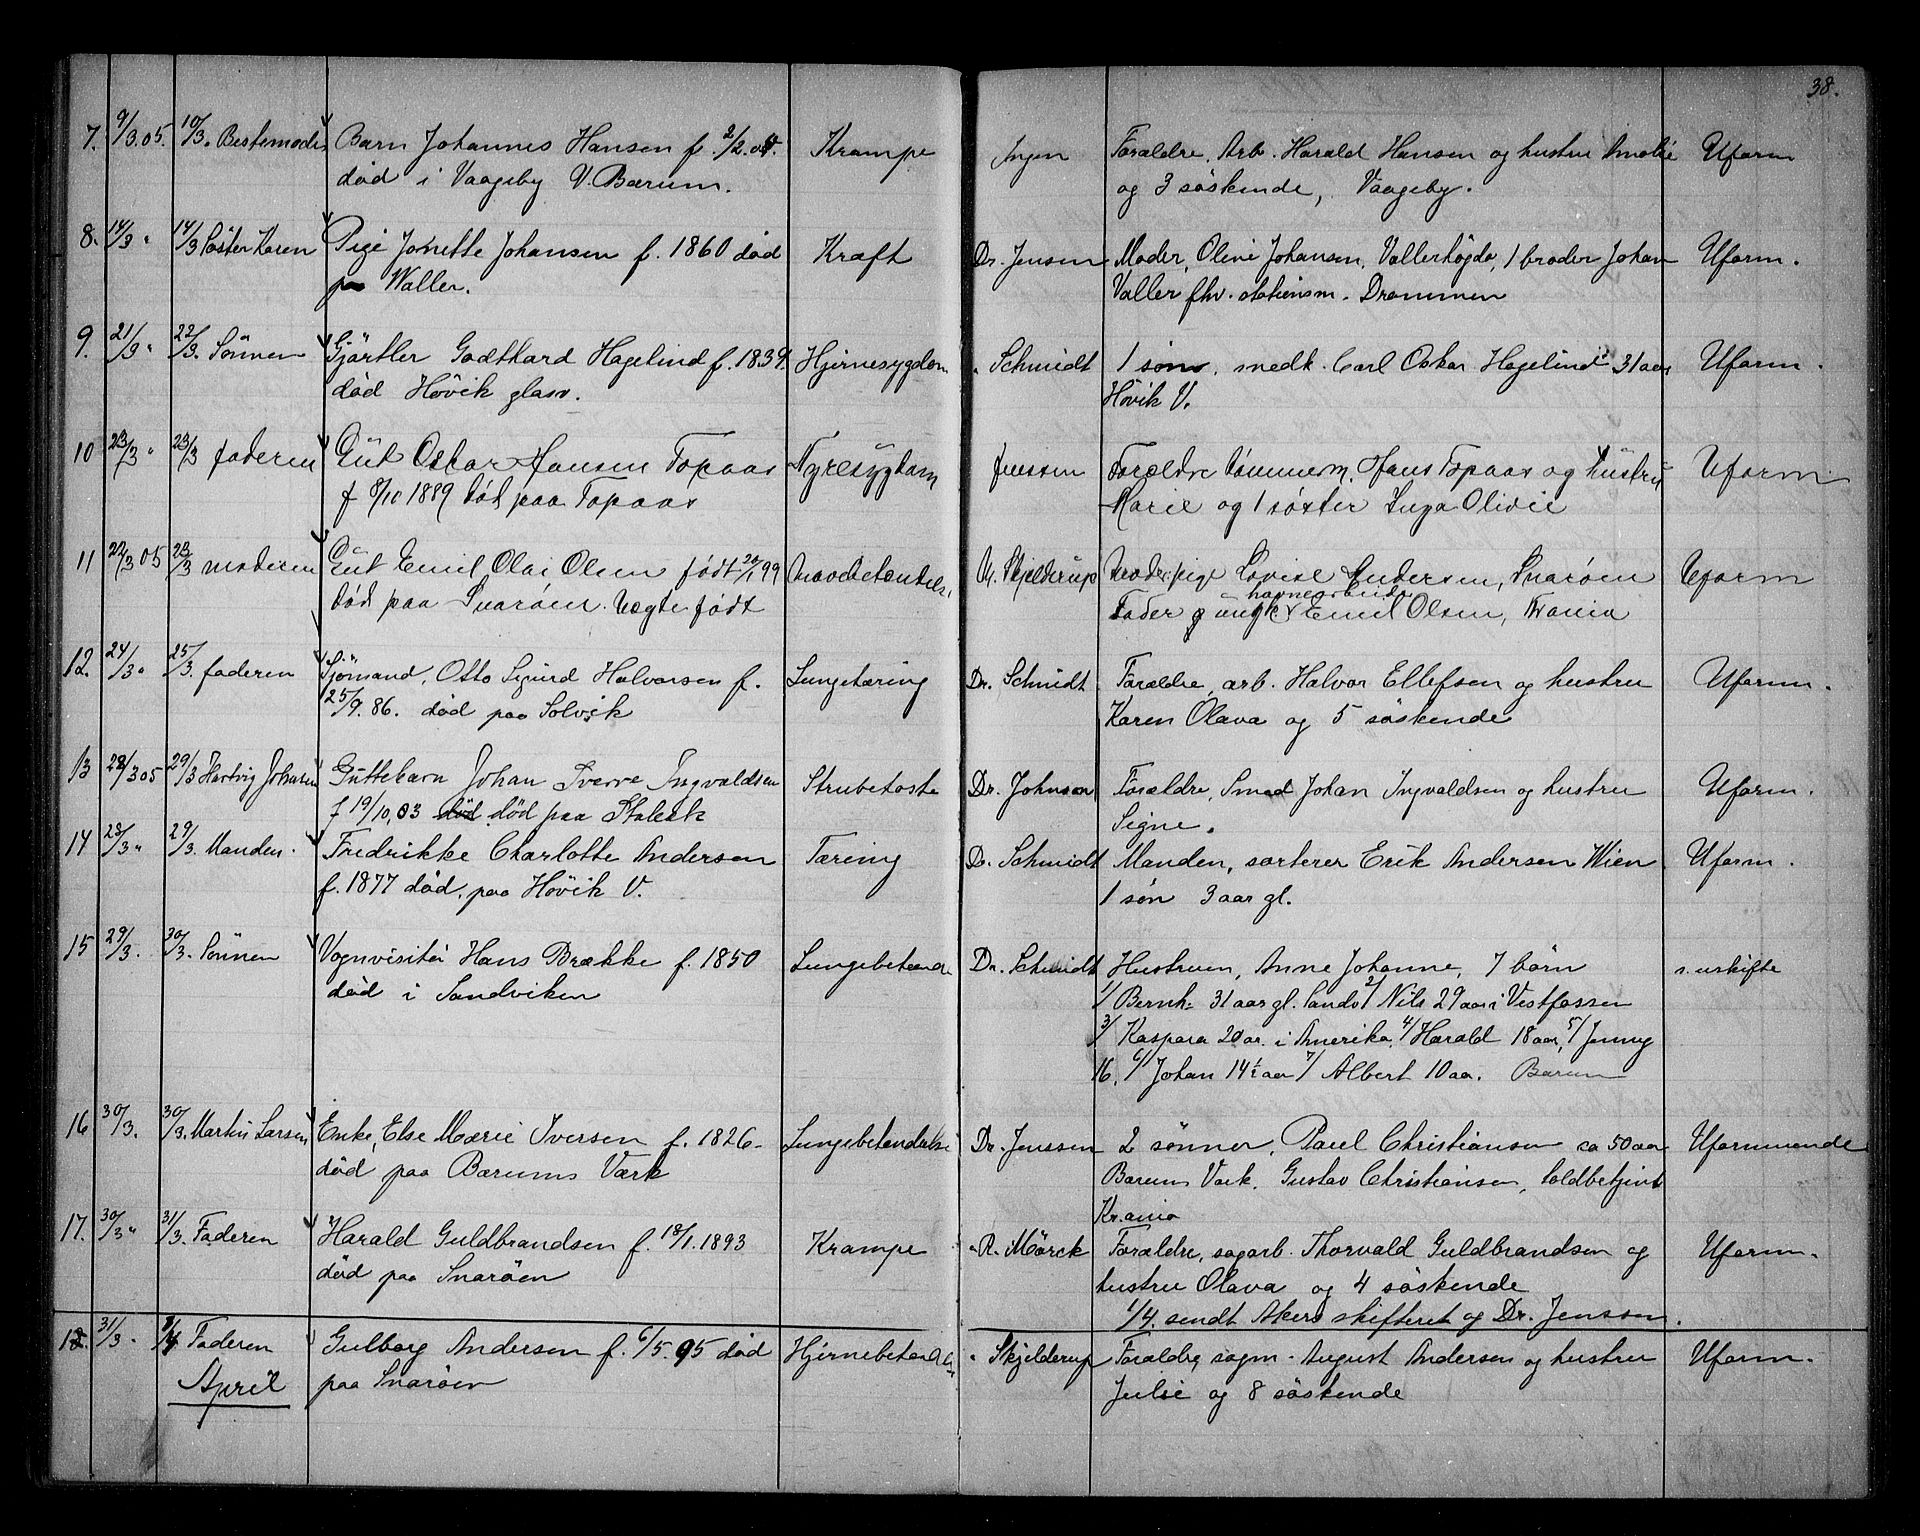 38.
7. 9/3.05. 10/3. Bestemoder Barn Johannes Hansen f. 2/2.05. Krampe Ingen Forældre, Arb. Harald Hansen og hustru Amalie Uform
død i Vaageby V. Bærum. og 3 søskende, Vaageby.
8. 14/3 " 14/3 Søster Karen Pige Jonette Johansen f. 1860 død Kræft Dr. Jensen Moder, Oline Johansen, Vallerhøgda, 1 broder Johan Uform.
paa Waller. Valler fhv. stationsm. Drammen
9. 21/3 " 22/3. Sønnen Gjørtler Godthard Hagelind f. 1839. Hjernesygdom " Schmidt 1 søn, smedk. Carl Oskar Hagelind 31 aar Uform.
død Høvik glasv. Høvik V.
10 23/3 " 23/3 faderen Gut Oskar Hansen Topaas Nyresygdom Jenssen Forældre Tømmerm. Hans Topaas og hustru Uform.
f 8/10 1889 død paa Topaas Marie og 1 søster Inga Olivie
11 22/3 05 23/3 moderen Gut Emil Olai Olsen født 20/1 99 " Skjelderup Moder: pige Lovise Andersen, Snarøen Uform
havnearbeider
død paa Snarøen. Uægte født Fader ungk. Emil Olsen, Krania
12. 24/3 " 25/3. faderen Sjømand, Otto Sigurd Halvorsen f. Lungetæring Dr. Schmidt Forældre, arb. Halvor Ellefsen og hustru Uform.
25/9. 86. død paa Solvik Karen Olava og 5 søskende
13 28/3 05 29/3 Hartvig Johnsen Guttebarn Johan Sverre Ingvaldsen Strubehoste Dr. Johnsen Forældre, Smed Johan Ingvaldsen og hustru Uform.
f 19/10, 03 død død paa Stabæk Signe.
14 28/3 " 29/3. Manden. Fredrikke Charlotte Andersen Tæring Dr. Schmidt Manden, sorterer Erik Andersen Wien Uform.
f. 1877 død. paa Høvik V. 1 søn 3 aar gl.
15 29/3. 30/3. Sønnen Vognvisitør Hans Brække f. 1850 Lungebetænde Dr. Schmidt Hustruen, Anne Johanne, 7 børn s. uskifte
død i Sandviken 1/ Bernh. 31 aar gl. Sandv. 2/ Nils 29 aar i Vestfossen
3/ Kaspara 20 ar. i Amerika. 4/ Harald 18 aar, 5/ Jenny
16. 6/ Johan 14½ aar 7/ Albert 10 aa. Bærum
16 30/3. 30/3. Martin Larsen Enke, Else Marie Iversen f. 1826- Lungebetændelse Dr. Jenssen 2 sønner, Paul Christiansen ca 50 aar Uformuende
død paa Bærums Værk Bærums Værk. Gustav Christiansen, toldbetjent
Krania
17. 30/3 " 31/3. Faderen Harald Guldbrandsen f. 18/1. 1893 Krampe " R. Mørck Forældre, sagarb. Thorvald Guldbrandsen og Uform.
død paa Snarøen hustru Olava og 4 søskende
1/4. sendt Akers skifteret og Dr. Jenssen.
18. 31/3 " 1/4 Faderen Gulborg Andersen f. 6/5. 95 død Hjernebetænd " Skjelderup Forældre, sagm. August Andersen og hustru Uform.
April paa Snarøen Julie og 8 søskende